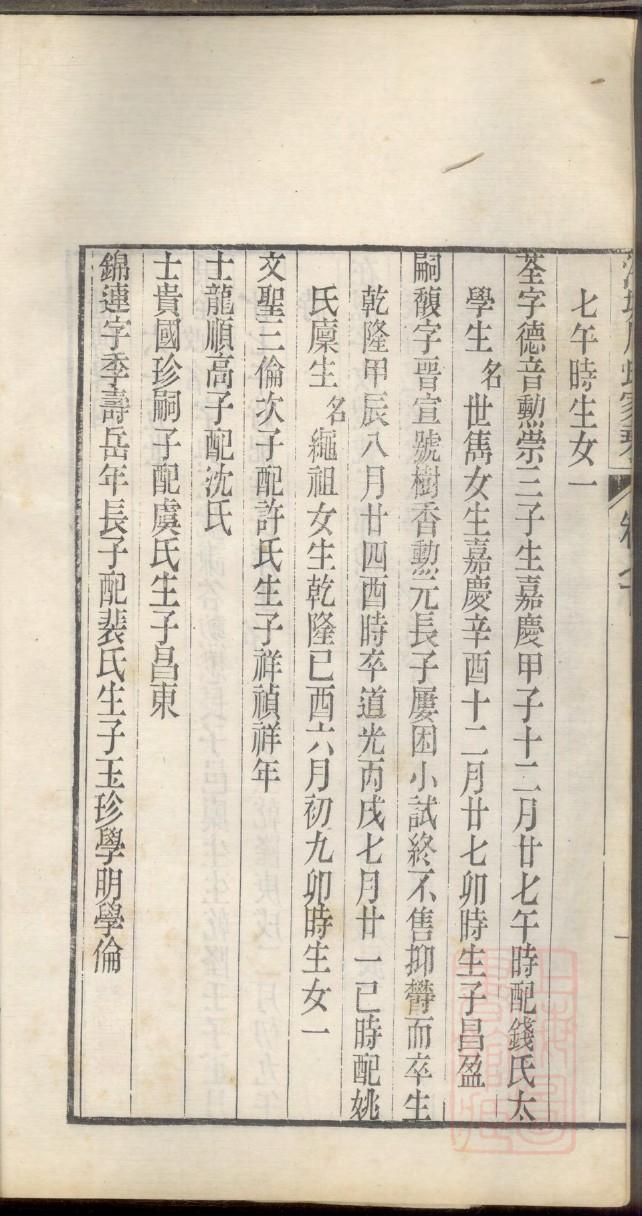 七午時生女一
荃字德音勲崇三子生嘉慶甲子十二月廿七午時配錢氏太
學生名世雋女生嘉慶辛酉十二月廿七卯時生子昌盈
嗣馥字晋宣號樹香勲元長子屢困小試終不售抑欝而卒生
乾隆甲辰八月廿四酉時卒道光丙戌七月廿一巳時配姚
氏廩生名繩祖女生乾隆巳酉六月初九卯時生女一
文聖三倫次子配許氏生子祥禎祥年
士龍順高子配沈氏
士貴國珍嗣子配虞氏生子昌東
錦連字季壽岳年長子配裴氏生子玉珍學明學倫